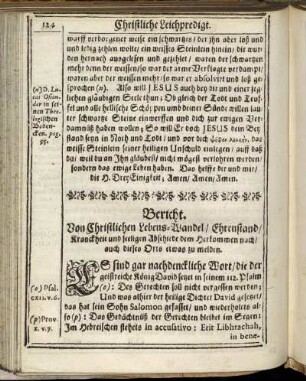 124
Christliche Leichpredigt.
warff verborgener weise ein schwartzes / der ihn aber loß und
ledig zehlen wolte / ein weisses Steinlein hinein / die wur-
den hernach außgelesen und gezehlet / waren der schwartzen
mehr denn der weissen / so war der arme Verklagte verdampt /
waren aber der weissen mehr / so war er absolvirt und loß ge-
sprochen (n). Also will JESUS auch bey dir und einer jeg-
lichen gläubigen Seele thun; Ob gleich der Todt und Teuf-
fel und alle hellische Schöpen und deiner Sünde willen lau-
ter schwartze Steine einwerffen und dich zur ewigen Ver-
damnüß haben wollen; So will Er doch JESUS dein Bey-
stand seyn in Noth und Todt / und vor dich
weisse Steinlein seiner heiligen Unschuld einlegen / auff daß
du / weil du an Jhn gläubest / nicht mögest verlohren werden /
sondern das ewige Leben haben. Das helffe dir und mir /
die H. Drey Einigkeit, Amen / Amen / Amen.
(n) D. Lu-
cas Osian-
der in sei-
nen Theo-
logischen
Beden-
cken. pag.
Bericht.
Von Christlichen Lebens-Wandel / Ehrenstand /
Kranckheit und seeligen Abschiede dem Herkommen nach /
auch dieses Orts etwas zu melden.
ES sind gar nachdenckliche Wort / die der
geistreiche König David setzet in seinem 112. Psalm
(o): Des Gerechten soll nicht vergessen werden:
Und was alhier der heilige Dichter David gesetzet /
das hat sein Sohn Salomon gefasset / und wiederholet al-
so (p): Das Gedächtnüß der Gerechten bleibet im Segen:
Jm Hebreischen stehets in accusativo: Erit Libhrachah,
in bene-
(o) Psal.
CXII. v. 6.
(p) Prov.
X. v. 7.